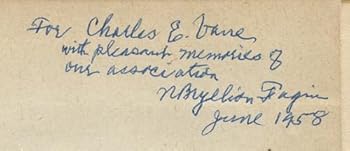 For Charles E. Vane
with pleasant memories of
our association
N Bryllion Fagin
June 1958